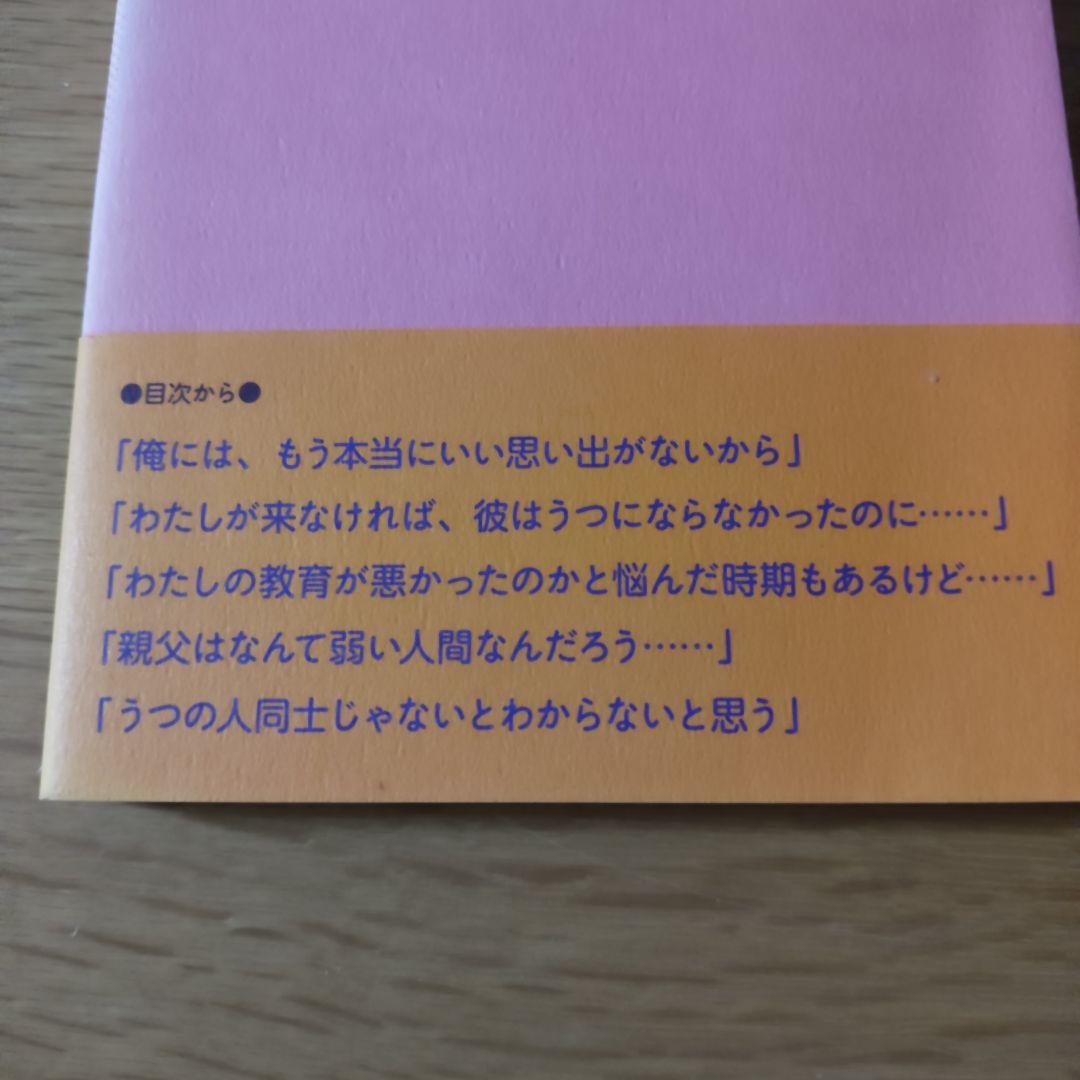 ●目次から●
「俺には、もう本当にいい思い出がないから」
「わたしが来なければ、彼はうつにならなかったのに……」
「わたしの教育が悪かったのかと悩んだ時期もあるけど……」
「親父はなんて弱い人間なんだろう……」
「うつの人同士じゃないとわからないと思う」